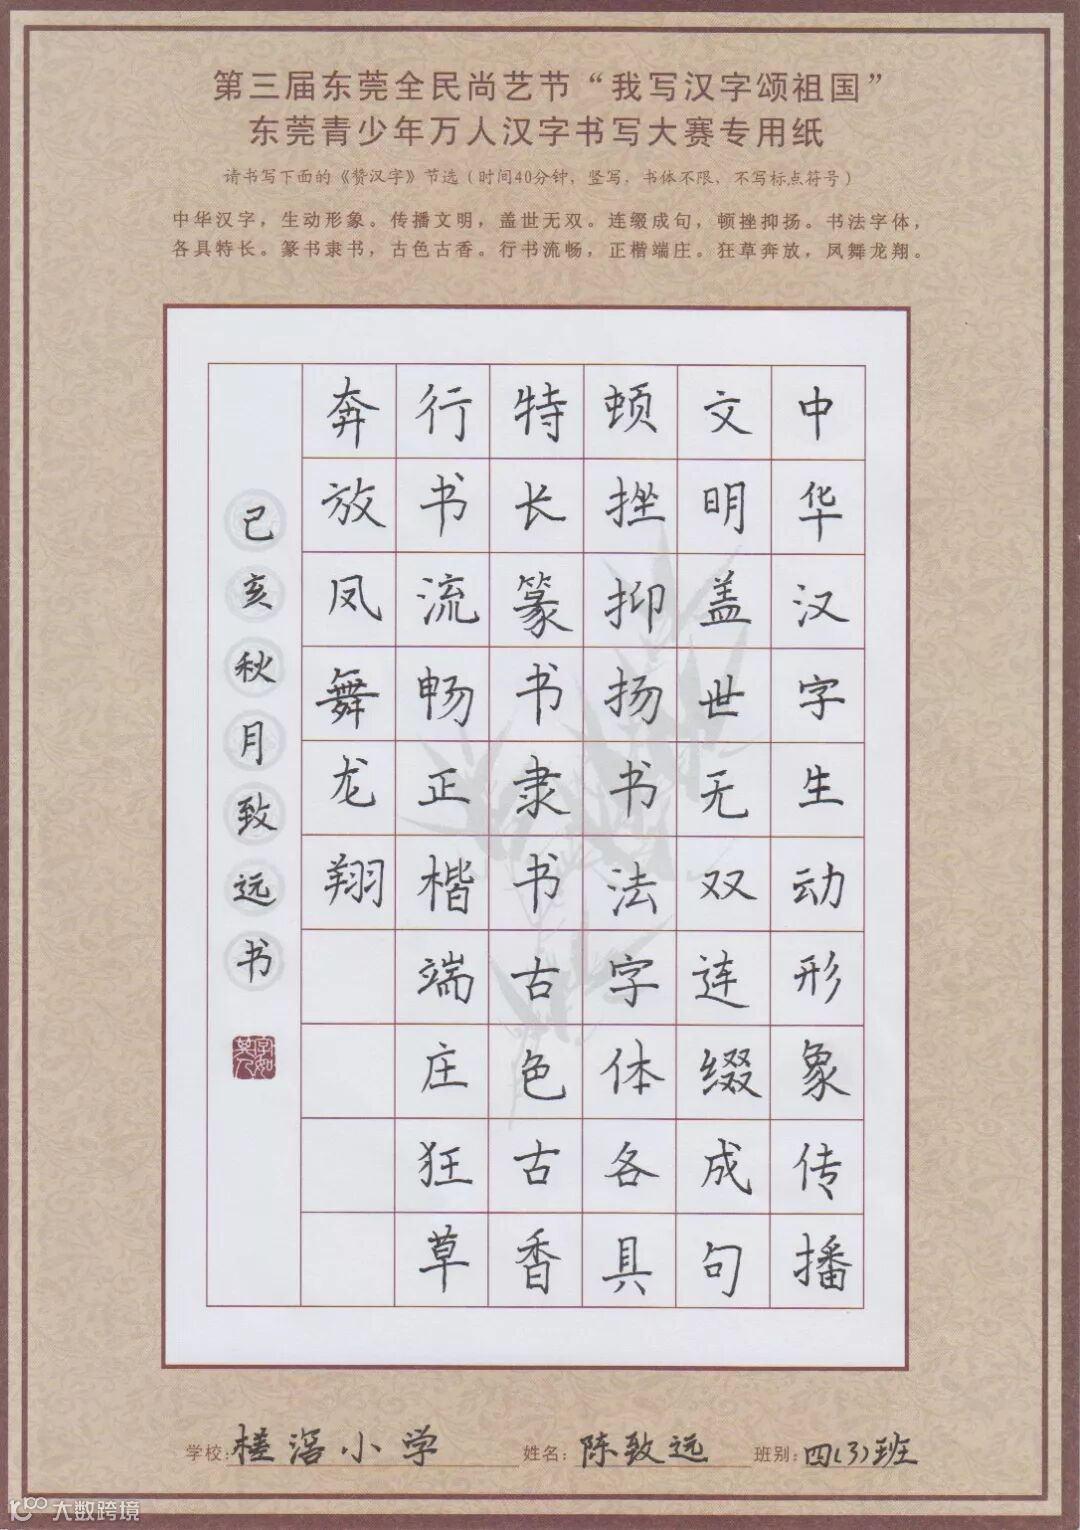 第三届东莞全民尚艺节“我写汉字颂祖国”
东莞青少年万人汉字书写大赛专用纸
请书写下面的《赞汉字》节选（时间40分钟，竖写，书体不限，不写标点符号）
中华汉字，生动形象。传播文明，盖世无双。连缀成句，顿挫抑扬。书法字体，
各具特长。篆书隶书，古色古香。行书流畅，正楷端庄。狂草奔放，凤舞龙翔。
中华汉字生动形象传播
文明盖世无双连缀成句
顿挫抑扬书法字体各具
特长篆书隶书古色古香
行书流畅正楷端庄狂草
奔放凤舞龙翔
己亥秋月致远书
字如其人
学校：槎滘小学 姓名：陈致远 班别：四(3)班
大数跨境